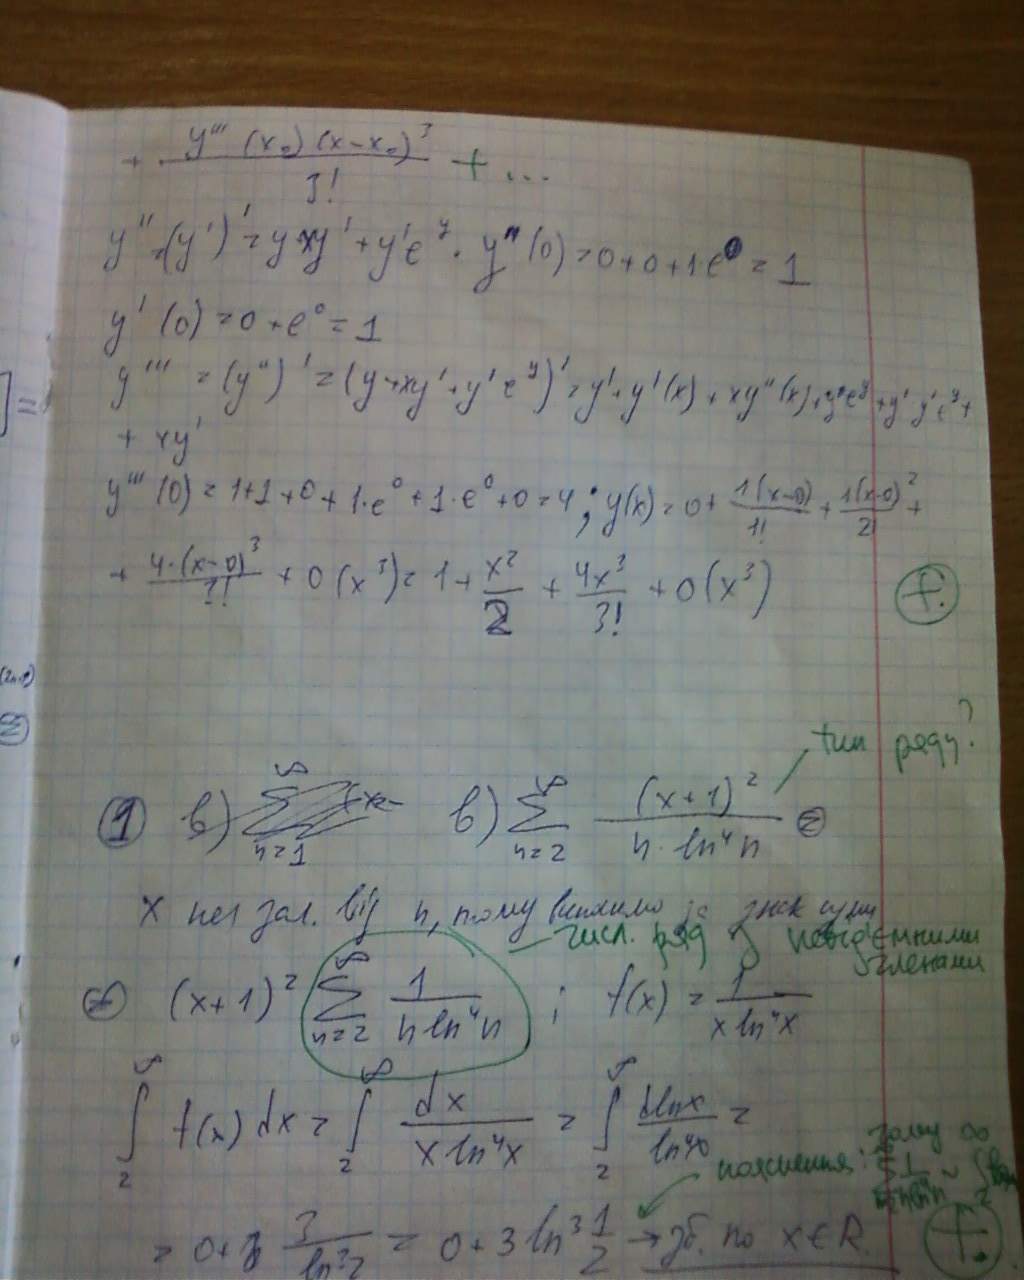 + y'''(x₀)(x-x₀)³ / 3! + ...
y'' = (y')' = y+xy' + y'e^y . y''(0) = 0+0+1·e⁰ = 1
y'(0) = 0+e⁰ = 1
y''' = (y'')' = (y+xy'+y'e^y)' = y'+y'(x) + xy''(x)+y''e^y+y'y'e^y+
+ xy'
y'''(0) = 1+1+0+1·e⁰+1·e⁰+0=4; y(x) = 0 + 1(x-0)/1! + 1(x-0)²/2! +
+ 4·(x-0)³/3! + 0(x³) = 1 + x²/2 + 4x³/3! + 0(x³)
тип ряду?
① в) ∑_{n=1}^{∞} (x- в) ∑_{n=2}^{∞} (x+1)² / n·ln⁴n ⊜
x не зал. від n, тому виносимо за знак суми
числ. ряд з невід'ємними
членами
⊜ (x+1)² ∑_{n=2}^{∞} 1 / n ln⁴n ; f(x) = 1 / x ln⁴x
∫_2^∞ f(x) dx = ∫_2^∞ dx / x ln⁴x = ∫_2^∞ dlnx / ln⁴x =
пояснення: чому
= 0+3 3 / ln³2 = 0 + 3 ln³ 1/2 → зб. по x∈R